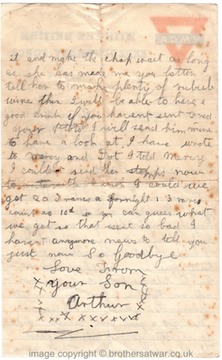 it and make the chap wait as long
as she has made me you better
tell her to make plenty of rubub
wine then I will be able to have a
good drink if you havent sent
I will send him mine
to have a look at, I have wrote
to Mercy and Dot I told Mercy
I couldnt send her now
we
get 20 a fornight & 3
so you can guess what
we get so that isnt so bad I
havent anymore news to tell you
just now So goodbye
Love From
Your Son
Arthur
x x x x x x x x
image copyright © brothersatwar.co.uk